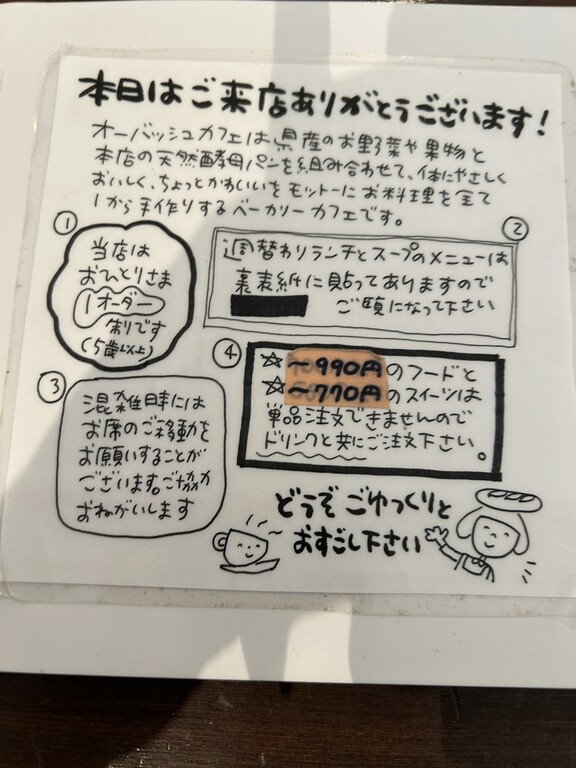 本日はご来店ありがとうございます!
オーバッシュカフェは県産のお野菜や果物と
本店の天然酵母パンを組み合わせて、体にやさしく
おいしく、ちょっとかわいいをモットーにお料理を全て
1から手作りするベーカリーカフェです。
①
当店は
おひとりさま
1オーダー
制です
(5歳以上)
②
週替わりランチとスープのメニューは
裏表紙に貼ってありますので
ご覧になって下さい
③
混雑時には
お席のご移動を
お願いすることが
ございます。ご協力
おねがいします
④
☆〜990円のフードと
☆〜770円のスイーツは
単品注文できませんので
ドリンクと共にご注文下さい。
どうぞごゆっくりと
おすごし下さい